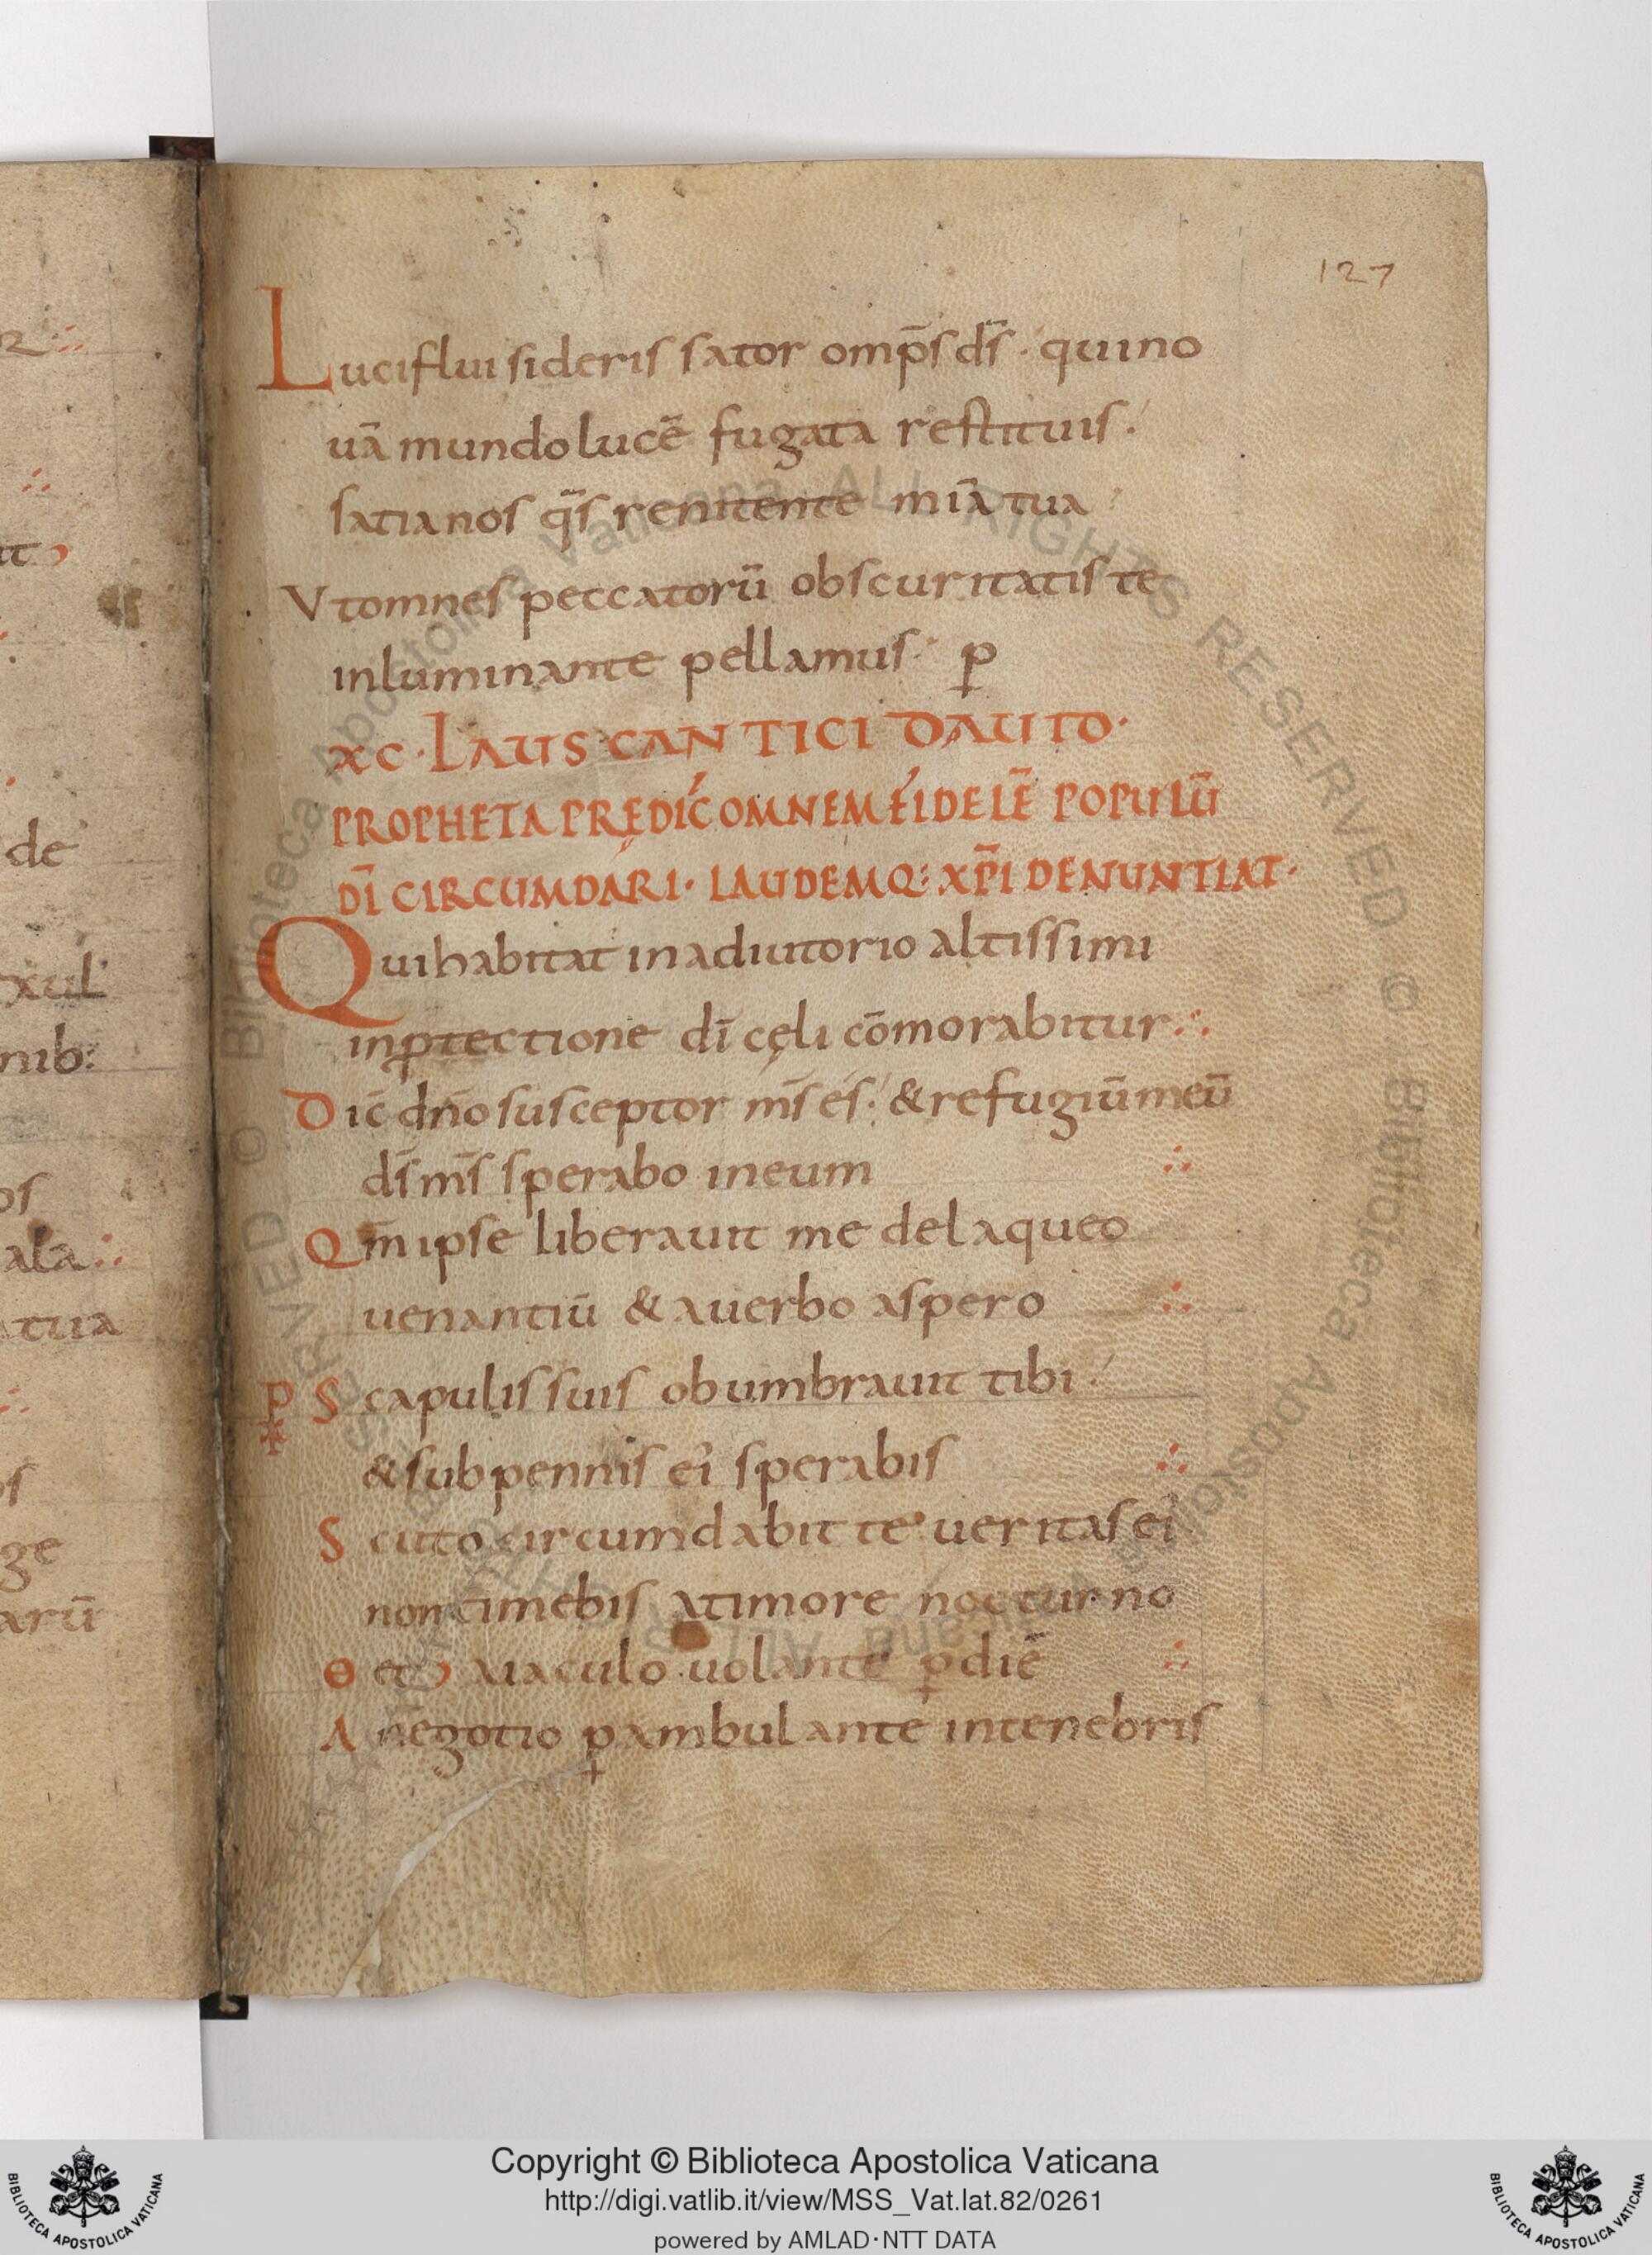 127
Luciflui sideris sator omp̄s ds̄ · qui no
uā mundo lucē fugata restituis :
satia nos qs̄ renitente mīa tua :
Ut omnes peccatorū obscuritatis te
inluminante pellamus · p
XC · LAUS CANTICI DAUID ·
PROPHETA PRĘDIC̄ OMNEM FIDELĒ POPULŪ
DĪ CIRCUMDARI · LAUDEMQ: XP̄I DENUNTIAT ·
Qui habitat in adiutorio altissimi
in ꝓtectione dī cęli cōmorabitur ∴
Dic̄ dn̄o susceptor ms̄ es : & refugiū meū
ds̄ ms̄ sperabo in eum ∴
Qm̄ ipse liberauit me de laqueo
uenantiū & a uerbo aspero ∴
P S capulis suis obumbrauit tibi :
& sub pennis ei sperabis ∴
Scuto circumdabit te ueritas ei
non timebis a timore nocturno
a iaculo uolante ꝑ diē ∴
A negotio ꝑambulante in tenebris
de
xul
nib:
os
alā ∴
tua
ge
arū
Copyright © Biblioteca Apostolica Vaticana
http://digi.vatlib.it/view/MSS_Vat.lat.82/0261
powered by AMLAD·NTT DATA
BIBLIOTECA APOSTOLICA VATICANA
BIBLIOTECA APOSTOLICA VATICANA